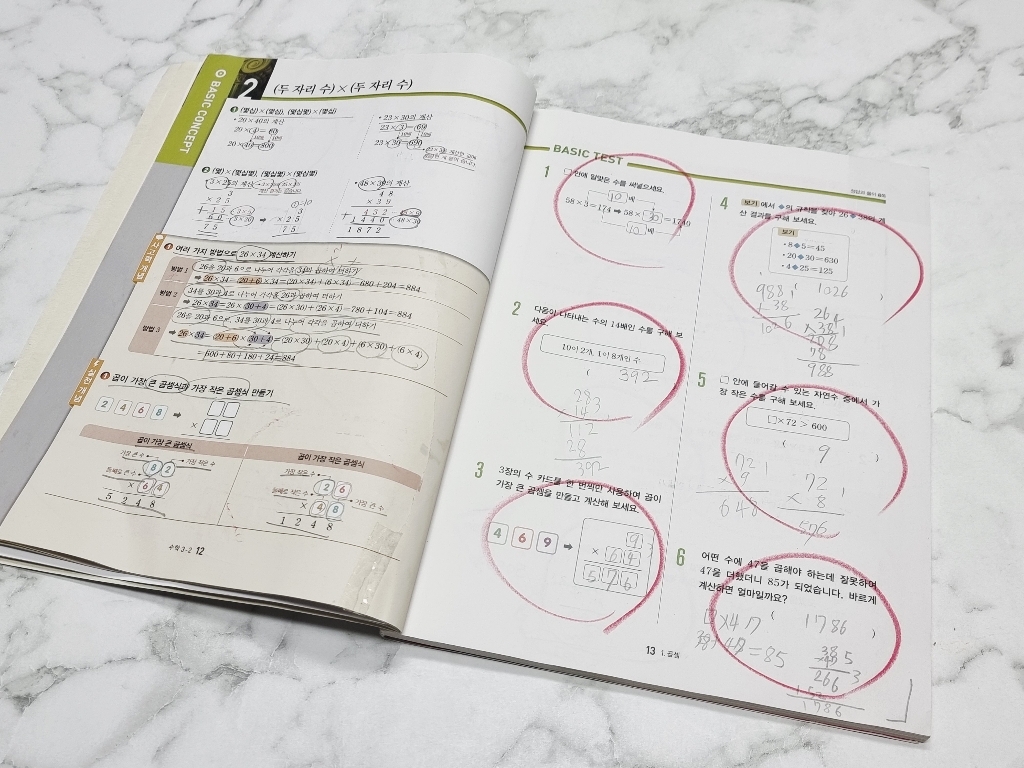 BASIC CONCEPT
2 (두 자리 수)×(두 자리 수)
1 (몇십)×(몇십), (몇십몇)×(몇십)
• 20×40의 계산
20×(4)=80
20×(40)=(800)
• 23×30의 계산
23×(3)=(69)
23×(30)=(690)
2 (몇)×(몇십몇), (몇십몇)×(몇십몇)
• 3×25의 계산
3
×25
15
60
75
3
×25
75
• 48×39의 계산
48
×39
432
1440
1872
3 여러 가지 방법으로 26×34 계산하기
방법 1
26을 20과 6으로 나누어 각각을 34와 곱하여 더하기
➡ 26×34=(20+6)×34=(20×34)+(6×34)=680+204=884
방법 2
34를 30과 4로 나누어 각각을 26과 곱하여 더하기
➡ 26×34=26×(30+4)=(26×30)+(26×4)=780+104=884
방법 3
26을 20과 6으로, 34를 30과 4로 나누어 각각을 곱하여 더하기
➡ 26×34=(20+6)×(30+4)=(20×30)+(20×4)+(6×30)+(6×4)
=600+80+180+24=884
곱이 가장 큰 곱셈식과 가장 작은 곱셈식 만들기
2 4 6 8 ➡
×
곱이 가장 큰 곱셈식
가장 큰 수
8 2
가장 작은 수
둘째로 큰 수
× 6 4
5248
곱이 가장 작은 곱셈식
가장 작은 수
2 6
둘째로 작은 수
× 4 8
가장 큰 수
1248
수학 3-2 12
BASIC TEST
1 □ 안에 알맞은 수를 써넣으세요.
10 배
58×3=174 ➡ 58×30=1740
10 배
2 다음이 나타내는 수의 14배인 수를 구해 보세요.
10이 2개, 1이 8개인 수
( 392
28 3
14
112
28
392
3 3장의 수 카드를 한 번씩만 사용하여 곱이
가장 큰 곱셈을 만들고 계산해 보세요.
4 6 9 ➡
9
× 6 4
5 7 6
4 보기 에서 ◆의 규칙을 찾아 26◆38의 계
산 결과를 구해 보세요.
보기
• 8◆5=45
• 20◆30=630
• 4◆25=125
1026 )
988
+38
1026
26 4
×38 1
208
78
988
5 □ 안에 들어갈 수 있는 자연수 중에서 가
장 작은 수를 구해 보세요.
□×72 > 600
( 9 )
72 1
×9
648
72 1
× 8
576
6 어떤 수에 47을 곱해야 하는데 잘못하여
47을 더했더니 85가 되었습니다. 바르게
계산하면 얼마일까요?
( 1786 )
□×47
=85
38 5
266 3
152
1786
13 1. 곱셈